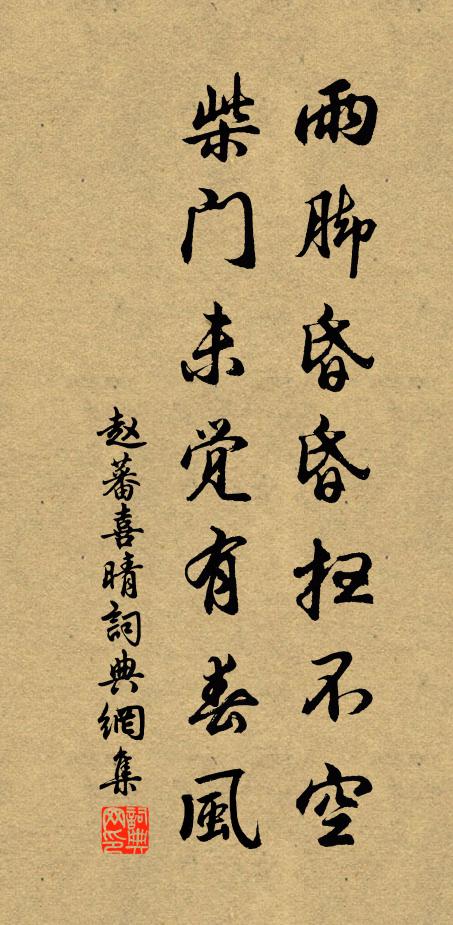 雨脚昏昏扫不空
柴门未觉有春風
赵蕃喜晴詞典網集
詞典網印